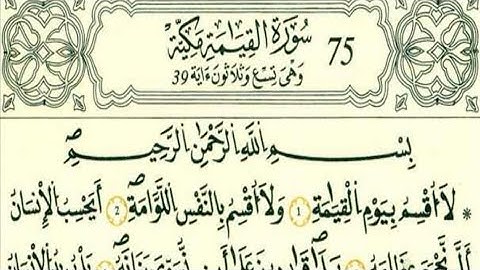 سُورَةُ الْقِيَٰمَةِ مَكِيَّة 75
وَهْىَ تِسْعٌ وَثَلَاثُونَ ءَايَة 39
بِسْمِ اللَّهِ الرَّحْمَٰنِ الرَّحِيمِ
* لَا أُقْسِمُ بِيَوْمِ الْقِيَٰمَةِ 1 وَلَا أُقْسِمُ بِالنَّفْسِ اللَّوَّامَةِ 2 أَيَحْسِبُ الْإِنسَانُ